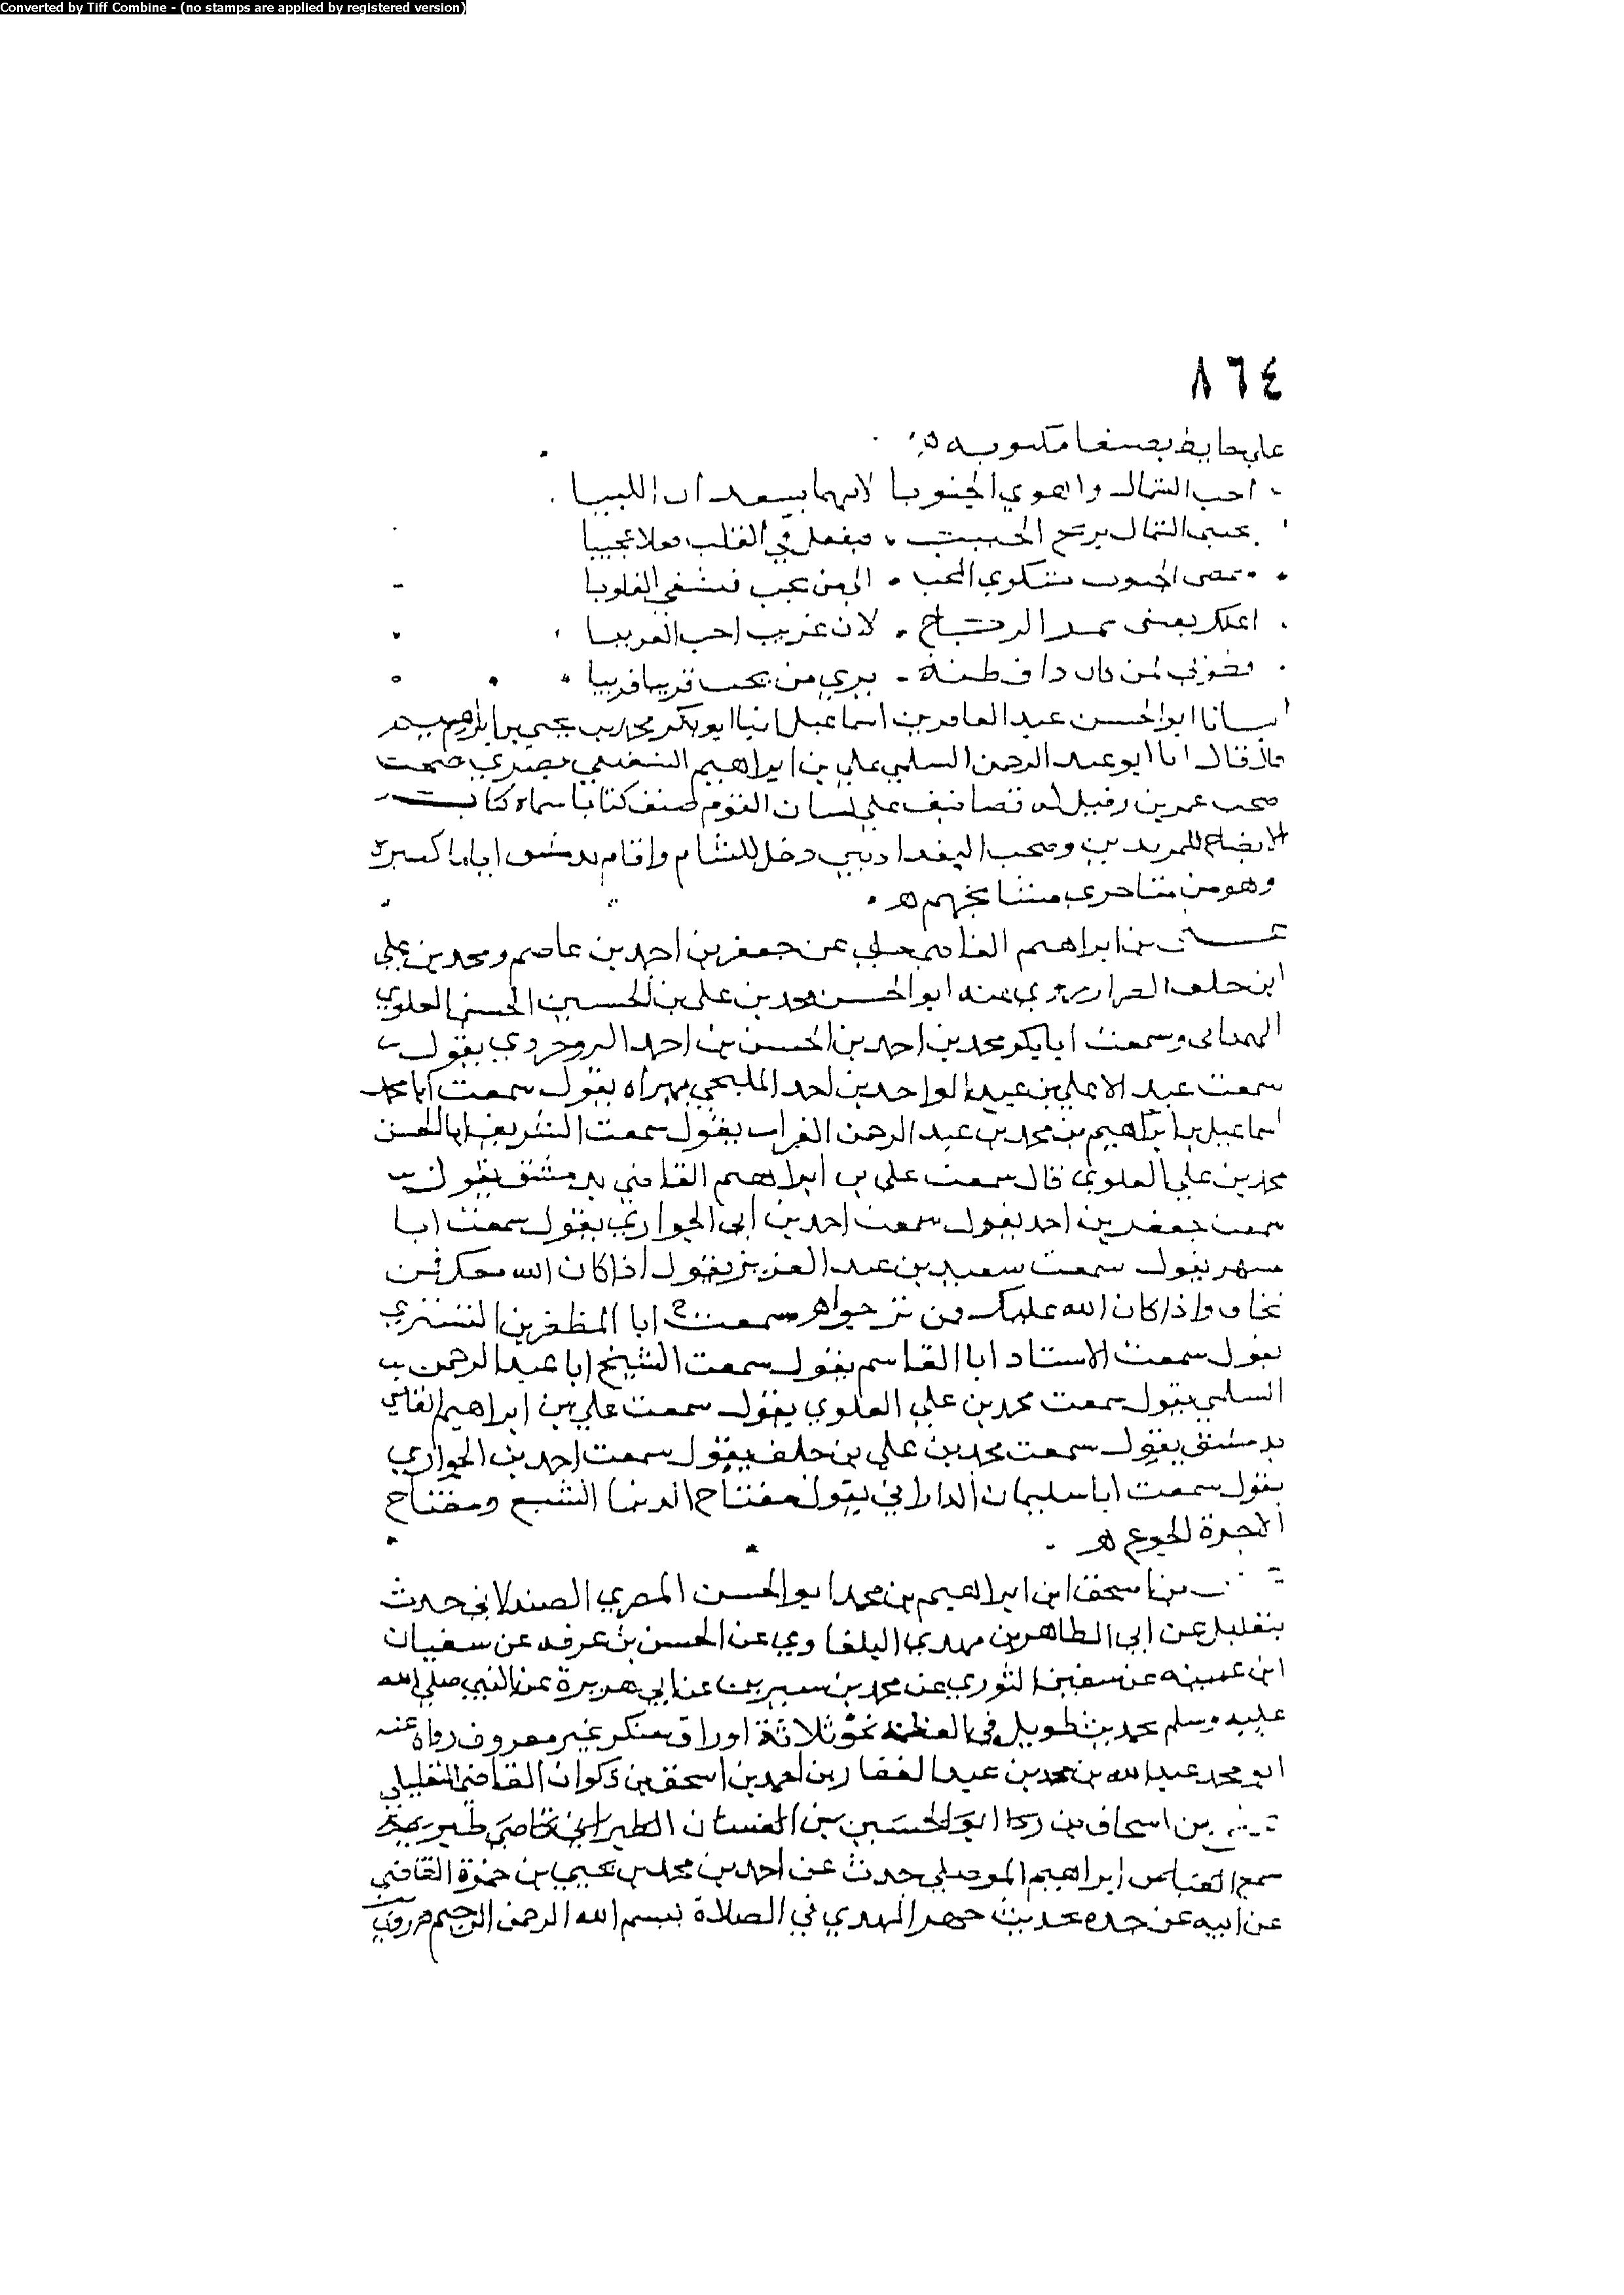 Converted by Tiff Combine - (no stamps are applied by registered version)
٨٦٤
على حايط بصنعا مكتوبه
احب الشمال واهوي الجنوبا لانهما يسعدان اللبيبا
الشمال بريح الحبيب فيفعل في القلب فعلا عجيبا
الجنوب بشكوي المحب الى من يحب فتشفى القلوبا
الرياح لان غريب احب الغريبا
لمن كان ذا فطنة يري من يحب قريبا قريبا
ابو الحسن عبد الغافر بن اسماعيل انبا ابو بكر محمد بن يحيى بن ابراهيم
قال انا ابو عبد الرحمن السلمي علي بن ابراهيم
صحب عمر بن رفيل له تصانيف على لسان القوم صنف كتابا سماه كتاب
الايضاح للمريدين وصحب البغداديين دخل للشام واقام بدمشق اياما كثيرة
وهو من متاخري مشايخهم
بن ابراهيم القاضي عن جعفر بن احمد بن عاصم ومحمد بن علي
ابن خلف عنه ابو الحسن محمد بن علي بن الحسين الحسني العلوي
الهمداني وسمعت ابا بكر محمد بن احمد بن الحسن بن احمد البروجردي يقول
سمعت عبد الاعلي بن عبد الواحد بن احمد المليحي بهراه يقول سمعت ابا محمد
اسماعيل بن ابراهيم بن محمد بن عبد الرحمن القراب يقول سمعت الشريف ابا الحسن
محمد بن علي العلوي قال سمعت علي بن ابراهيم القاضي بدمشق يقول
سمعت جعفر بن احمد يقول سمعت احمد بن ابي الحواري يقول سمعت ابا
مسهر يقول سمعت سعيد بن عبد العزيز يقول اذا كان الله معك فمن
تخاف واذا كان الله عليك فمن ترجوا سمعت ابا المظفر بن القشيري
يقول سمعت الاستاد ابا القاسم يقول سمعت الشيخ ابا عبد الرحمن
السلمي يقول سمعت محمد بن علي العلوي يقول سمعت علي بن ابراهيم القاضي
بدمشق يقول سمعت محمد بن علي بن خلف يقول سمعت احمد بن الحواري
يقول سمعت ابا سليمان الداراني يقول مفتاح الدنيا الشبع ومفتاح
الاخرة الجوع
بن اسحق ابن ابراهيم بن محمد ابو الحسن المصري الصندلاني حدث
بتفليل عن ابي الطاهر بن مهدي البلقاوي عن الحسن بن عرفه عن سفيان
ابن عيينه عن سفين الثوري عن محمد بن سيرين عن ابي هريرة عن النبي صلى الله
عليه وسلم بحديث طويل في العظمة نحو ثلاثة اوراق منكر غير معروف رواه عنه
ابو محمد عبد الله بن محمد بن عبد الغفار بن احمد بن اسحق بن ذكوان القاضي البعلبكي
بن اسحاق بن ردا ابو الحسين بن الغسان الطبراني قاضي طبرية
سمع العباس ابراهيم الموصلي حدث عن احمد بن محمد بن يحيي بن حمزة القاضي
عن ابيه عن جده بحديث جهر المهدي في الصلاة ببسم الله الرحمن الرحيم